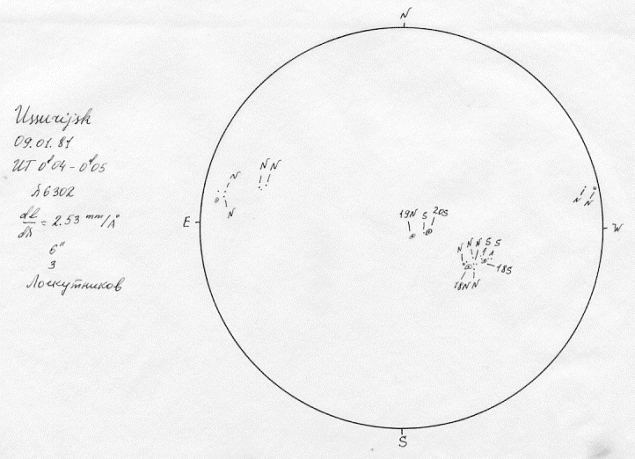 N
Ussurijsk
09.01.81
UT 0ᵈ04 - 0ᵈ05
λ6302
dl/dλ = 2.53 mm/Å
6"
3
Лоскутников
N N
N
N
E
19N S 20S
N N
W
N N N S S
18S
18N N
S